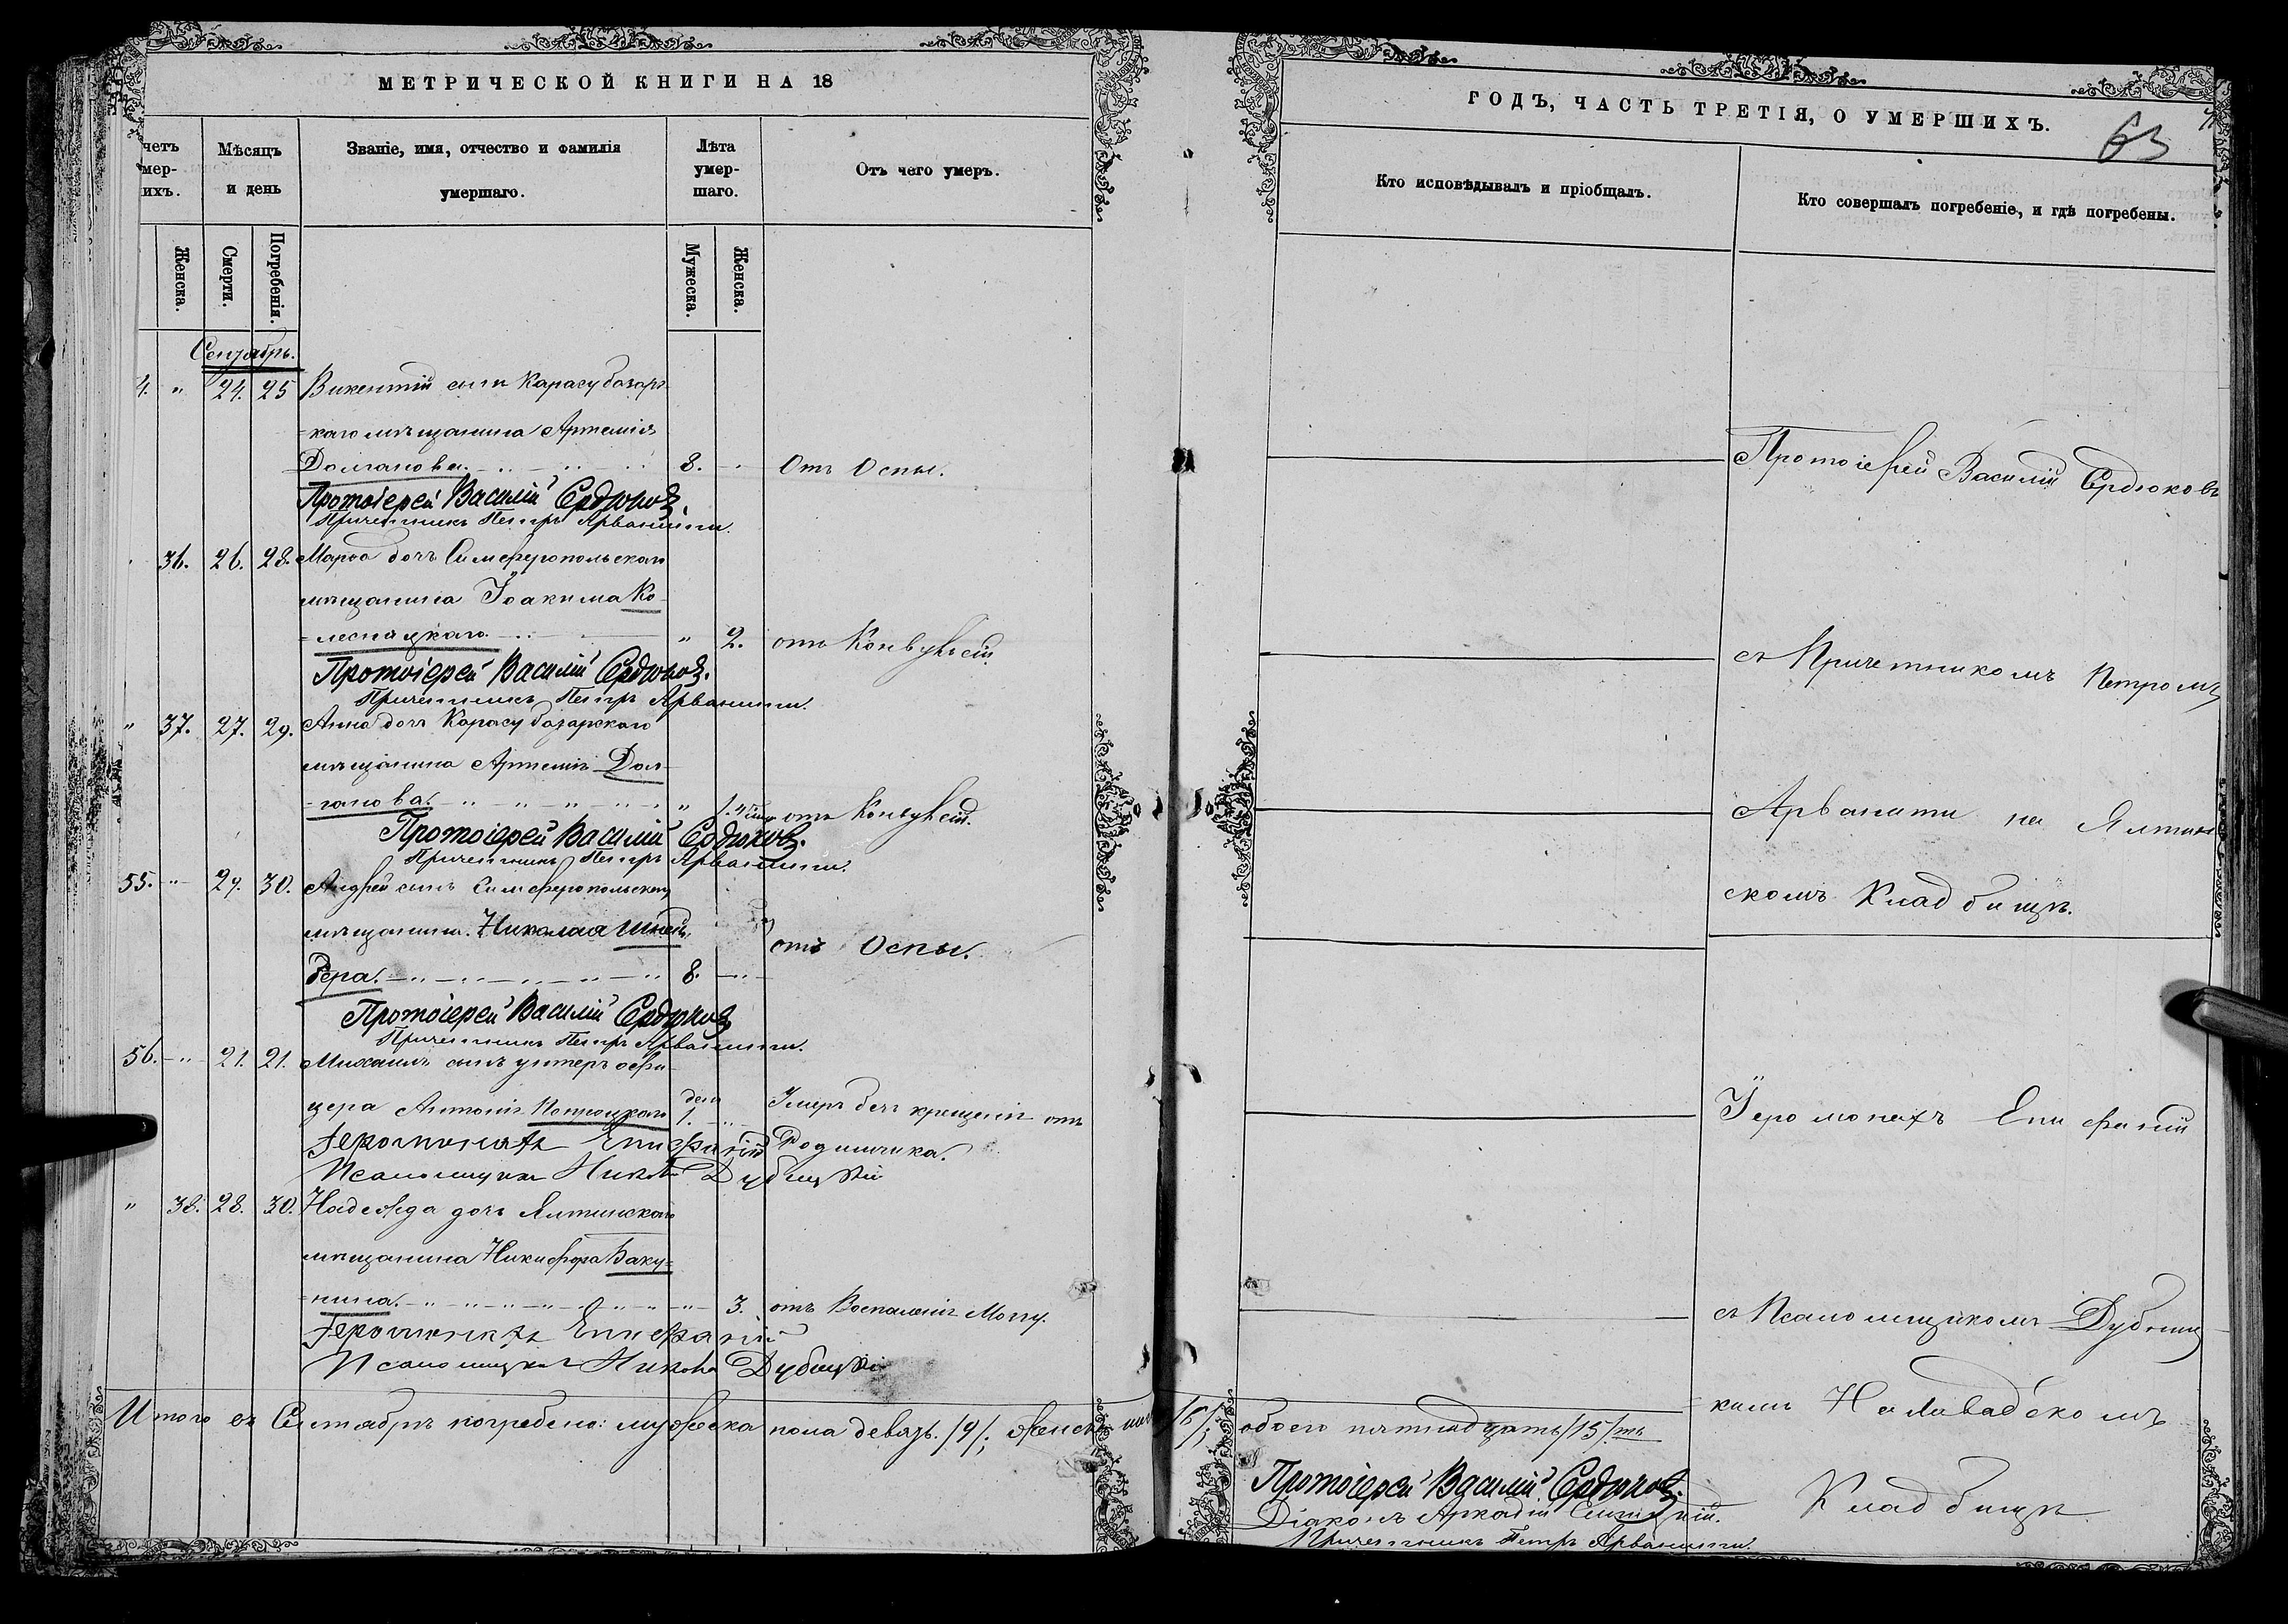 МЕТРИЧЕСКОЙ КНИГИ НА 18
четъ
мер-
ихъ.
Мѣсяцъ
и день
Званіе, имя, отчество и фамилія
умершаго.
Лѣта
умер-
шаго.
Отъ чего умеръ.
Женска.
Смерти.
Погребенія.
Мужеска.
Женска.
Сентябрь.
4. " 24. 25 Викентій сынъ Карасубазарс-
=каго мѣщанина Артемія
Долганова. 8. Отъ Оспы.
Протоіерей Василій Сердюковъ.
Причетникъ Петръ Арванити.
36. 26. 28. Марѳа дочь Симферопольскаго
мѣщанина Іоакима Ко-
=лесницкаго. " 2. отъ Конвульсій.
Протоіерей Василій Сердюковъ.
Причетникъ Петръ Арванити.
" 37. 27. 29. Анна дочь Карасубазарскаго
мѣщанина Артемія Дол-
=ганова. " 1. отъ Конвульсій.
Протоіерей Василій Сердюковъ.
Причетникъ Петръ Арванити.
55. " 29. 30. Андрей сынъ Симферопольскаго
мѣщанина Николая Шней-
дера. 8. отъ Оспы.
Протоіерей Василій Сердюковъ
Причетникъ Петръ Арванити.
56. " 21. 21. Михаилъ сынъ унтеръ офи-
цера Антонія день 1. Умеръ безъ крещенія отъ
Іеромонахъ Епифаній Родимчика.
Псаломщикъ Дубицкій
" 38. 28. 30. Надежда дочь Ялтинскаго
мѣщанина Никифора Баку=
=нина. 3. отъ Воспаленія Мозгу.
Іеромонахъ Епифаній
Псаломщикъ Дубицкій
Итого въ Сентябрѣ погребено: мужеска пола девять /9/; женска
ГОДЪ, ЧАСТЬ ТРЕТІЯ, О УМЕРШИХЪ.
63
Кто исповѣдывалъ и пріобщалъ.
Кто совершалъ погребеніе, и гдѣ погребены.
Протоіерей Василій Сердюковъ
съ Причетникомъ Петромъ
Арванити на Ялтин
скомъ Кладбищѣ.
Іеромонахъ Епифаній
съ Псаломщикомъ Дубиц-
=кимъ На Ливадскомъ
Кладбищѣ
/6/; обоего пятнадцать /15/ть
Протоіерей Василій Сердюковъ.
Діаконъ Аркадій
Причетникъ Петръ Арванити.